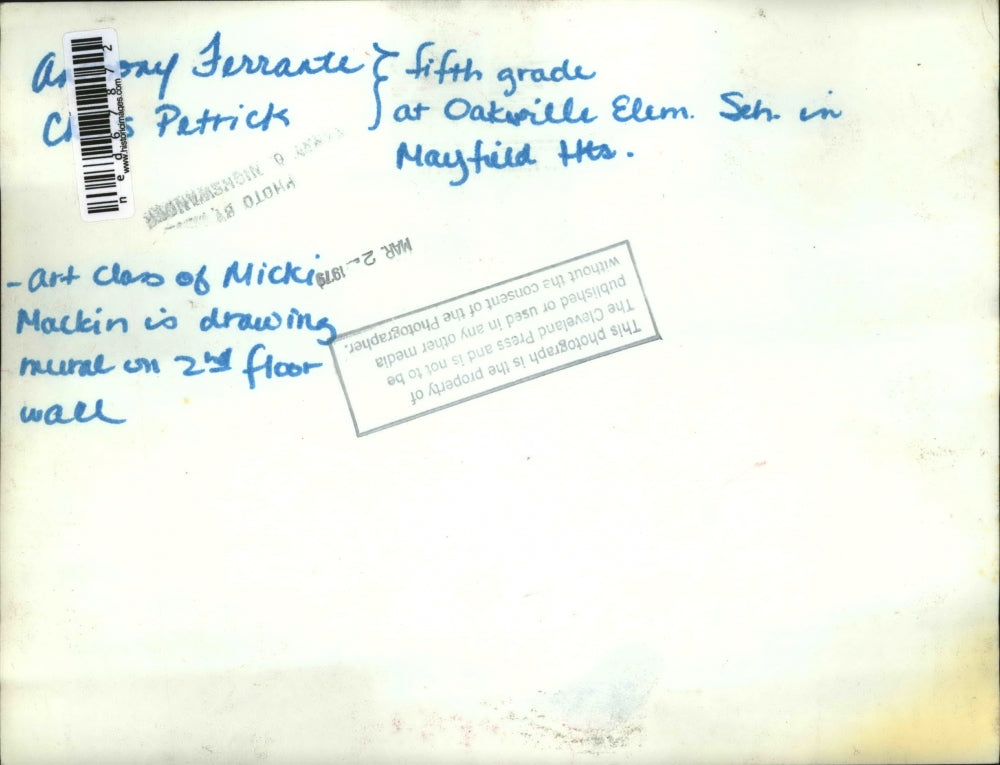 Ferrante } fifth grade
Petrick } at Oakville Elem. Sch. in
Mayfield Hts.
- Art Class of Micki
Mackin is drawing
mural on 2nd floor
wall
PHOTO BY
NIGHSWANDER
MAR 2 - 1979
This photograph is the property of
The Cleveland Press and is not to be
published or used in any other media
without the consent of the Photographer.
www.historicimages.com